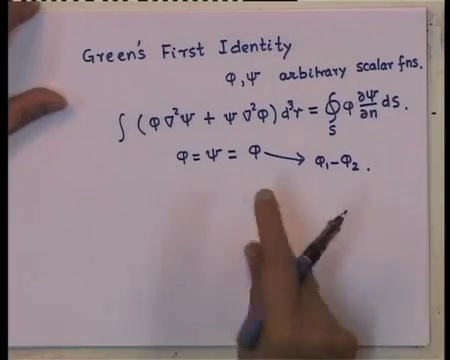 Green's First Identity
φ, ψ arbitrary scalar fns.
∫ (φ∇²ψ + ψ∇²φ) d³r = ∮_S φ ∂ψ/∂n dS.
φ = ψ = φ → φ₁ - φ₂.